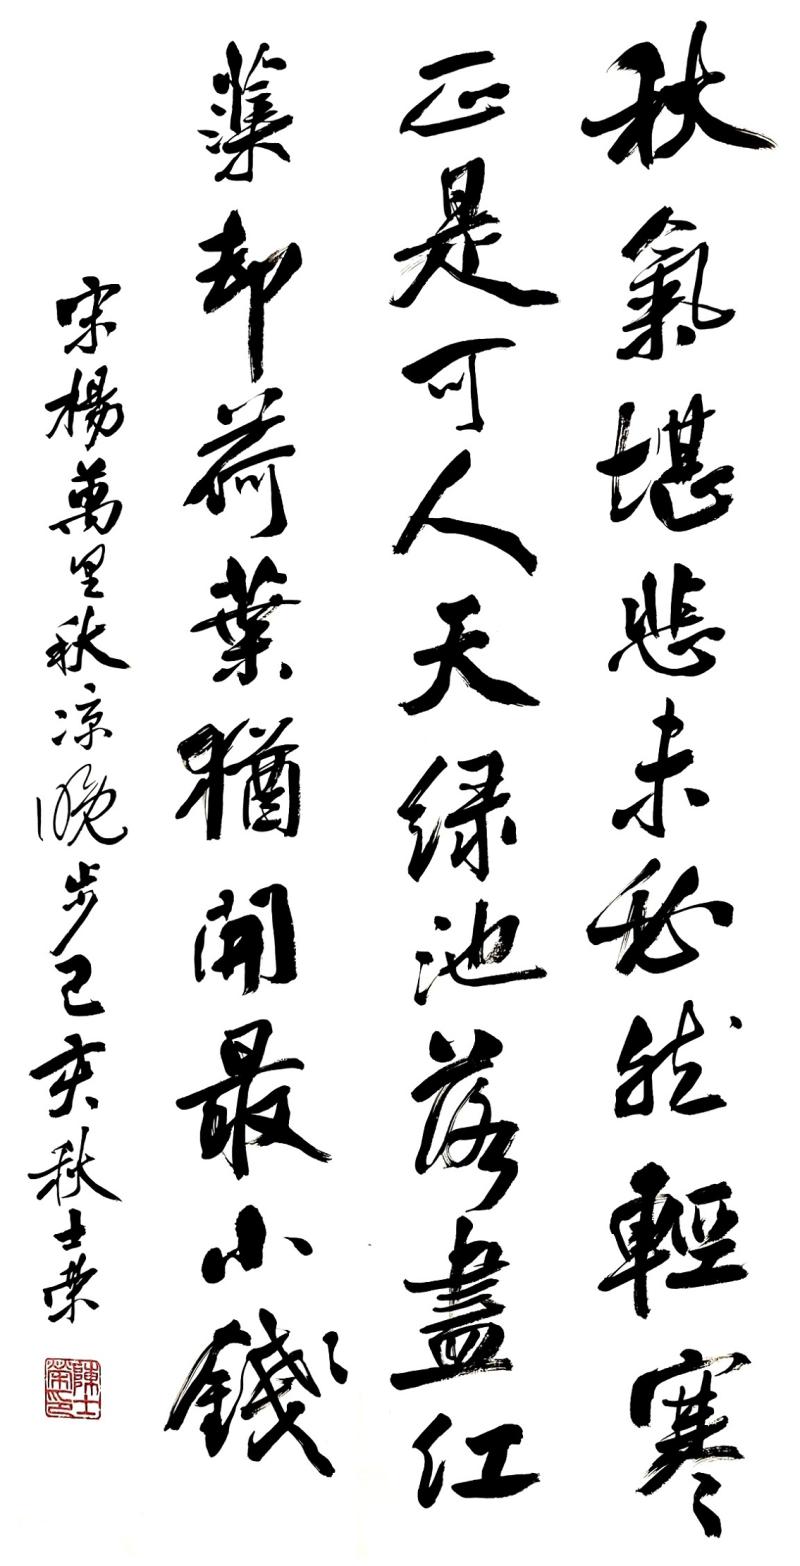 秋氣堪悲未必然輕寒
正是可人天绿池落盡红
蕖却荷葉猶開最小錢
宋楊萬里秋凉晚步己亥秋士榮
陳士榮印